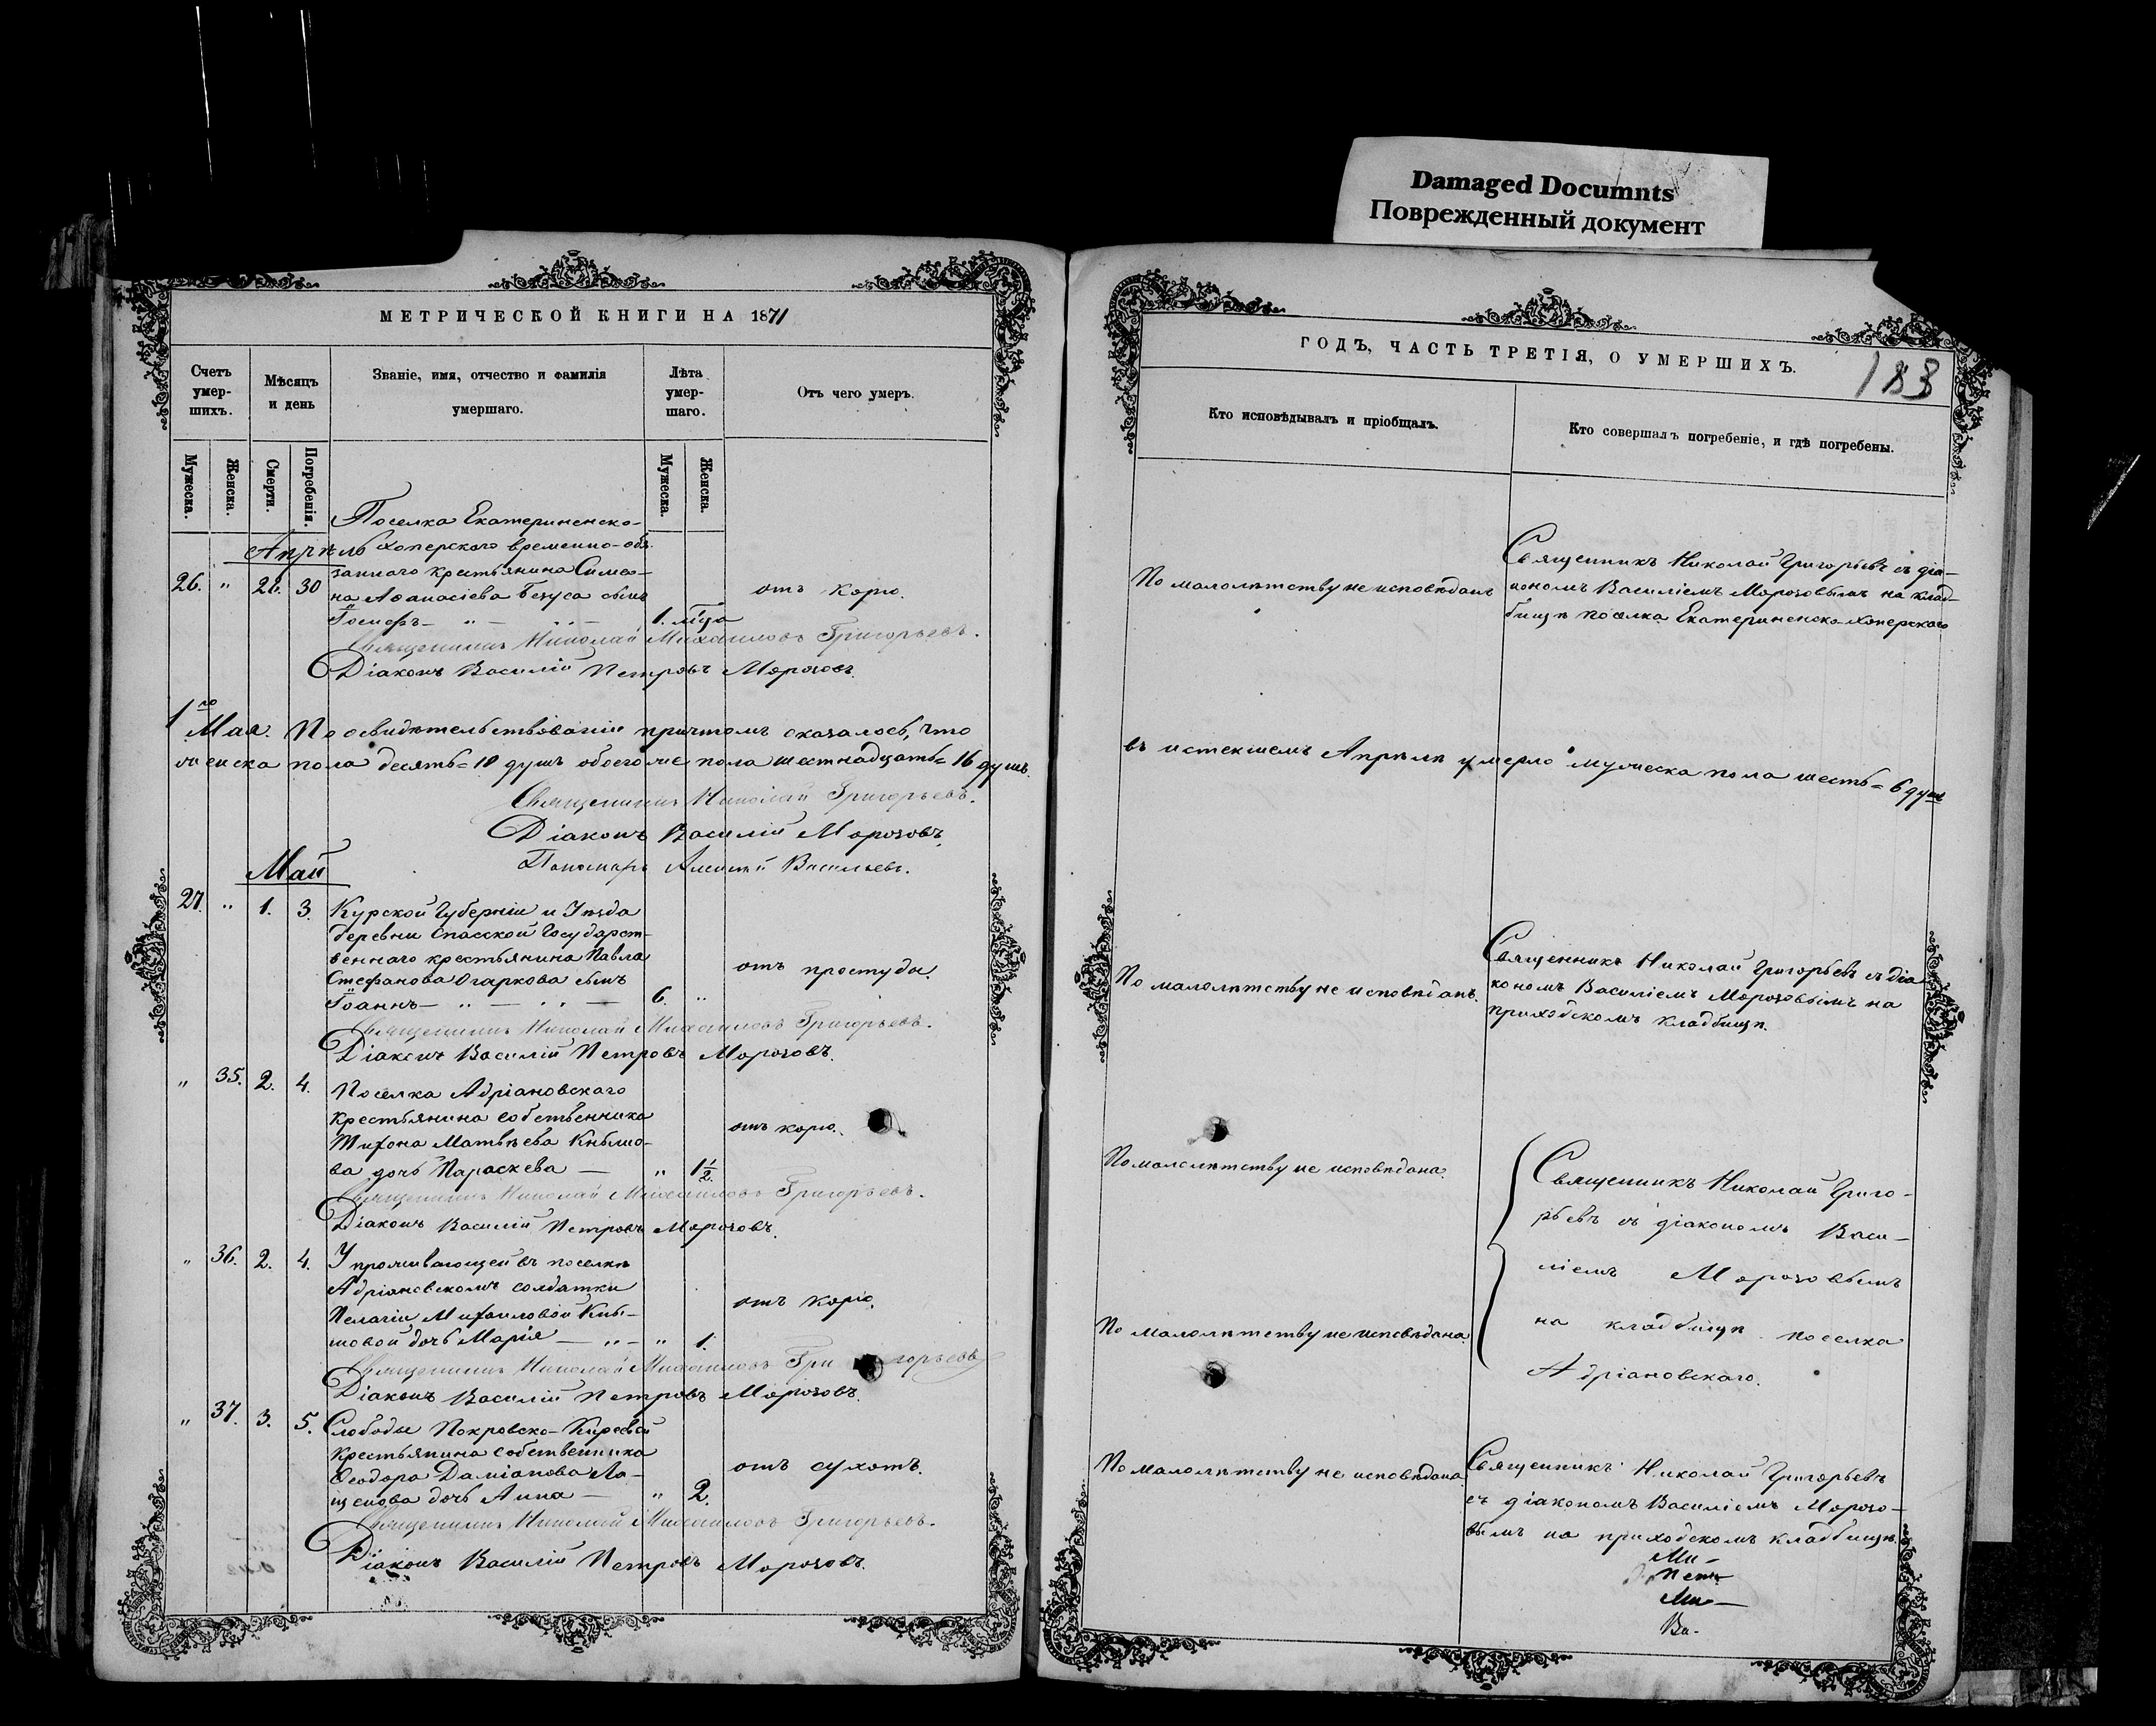 Damaged Documnts
Поврежденный документ
МЕТРИЧЕСКОЙ КНИГИ НА 1871
Счетъ умер-шихъ.
Мѣсяцъ и день
Званіе, имя, отчество и фамилія умершаго.
Лѣта умер-шаго.
Отъ чего умеръ.
Мужеска.
Женска.
Смерти.
Погребенія.
Мужеска.
Женска.
Поселка Екатериненско-
Апрѣль Хоперского временно-обя-
заннаго крестьянина Симео-
26. " 28. 30 на Аѳанасіева Безуса сынъ отъ корю.
Іосифъ — " — 1. мѣся
Священникъ Николай Михаиловъ Григорьевъ.
Діаконъ Василій Петровъ Морозовъ.
1го Мая. По освидѣтельствованіи причтомъ оказалось, что
женска пола десять = 10 душъ обоего же пола шестнадцать = 16 душъ.
Священникъ Николай Григорьевъ.
Діаконъ Василій Морозовъ.
Пономарь Алексѣй Васильевъ.
Май
27. " 1. 3. Курской Губерніи и Уѣзда
деревни Спасской Государст-
веннаго крестьянина Павла
Стефанова Огаркова сынъ отъ простуды.
Іоаннъ — " — " — 6. "
Священникъ Николай Михаиловъ Григорьевъ.
Діаконъ Василій Петровъ Морозовъ.
" 35. 2. 4. Поселка Адріановскаго
крестьянина собственника
Тихона Матвѣева Кнышо- отъ корю.
ва дочь Параскева — " 1½.
Священникъ Николай Михаиловъ Григорьевъ.
Діаконъ Василій Петровъ Морозовъ.
" 36. 2. 4. У проживающей въ поселкѣ
Адріановскомъ солдатки
Пелагіи Михаиловой Кны- отъ корю.
шовой дочь Марія — " — " 1.
Священникъ Николай Михаиловъ Григорьевъ
Діаконъ Василій Петровъ Морозовъ.
" 37. 3. 5. Слободы Покровско-Киреевой
крестьянина собственника
Ѳеодора Даміанова Ло- отъ сухотъ.
щенова дочь Анна — " 2.
Священникъ Николай Михаиловъ Григорьевъ.
Діаконъ Василій Петровъ Морозовъ.
ГОДЪ, ЧАСТЬ ТРЕТІЯ, О УМЕРШИХЪ.
183
Кто исповѣдывалъ и пріобщалъ.
Кто совершалъ погребеніе, и гдѣ погребены.
По малолѣтству не исповѣданъ
Священникъ Николай Григорьевъ съ діа-
кономъ Василіемъ Морозовымъ на клад-
бищѣ поселка Екатериненско-Хоперского
въ истекшемъ Апрѣлѣ умерло мужеска пола шесть = 6 душъ
По малолѣтству не исповѣданъ.
Священникъ Николай Григорьевъ съ діа
кономъ Василіемъ Морозовымъ на
приходскомъ кладбищѣ.
По малолѣтству не исповѣдана.
Священникъ Николай Григо-
рьевъ съ діакономъ Васи-
ліемъ Морозовымъ
на кладбищѣ поселка
Адріановскаго.
По малолѣтству не исповѣдана
По малолѣтству не исповѣдана
Священникъ Николай Григорьевъ
съ діакономъ Василіемъ Морозо-
вымъ на приходскомъ кладбищѣ.
Ми-
Ми-
Ва-